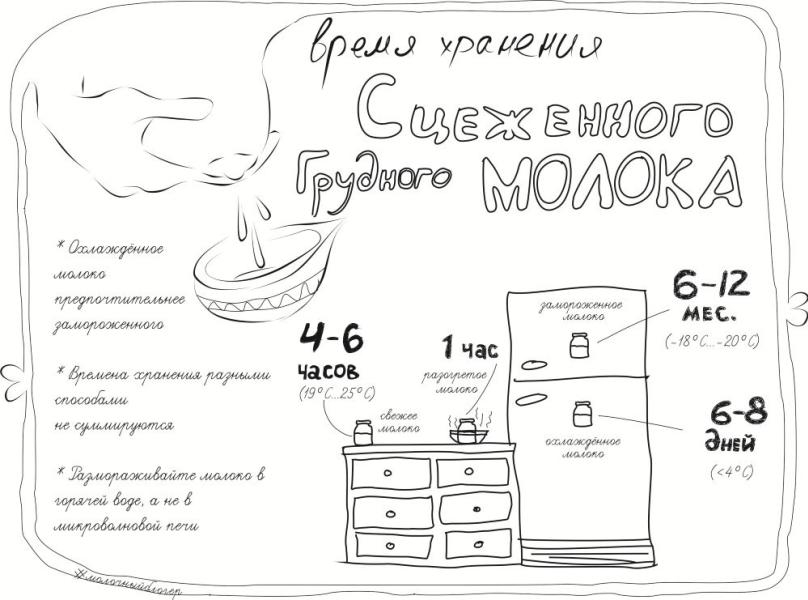 время хранения
Сцеженного
Грудного МОЛОКА
* Охлаждённое
молоко
предпочтительнее
замороженного
* Времена хранения разными
способами
не суммируются
* Размораживайте молоко в
горячей воде, а не в
микроволновой печи
4-6
часов
(19°C...25°C)
свежее
молоко
1 час
разогретое
молоко
замороженное
молоко
6-12
мес.
(-18°C...-20°C)
охлаждённое
молоко
6-8
дней
(<4°C)
#молочныйблогер